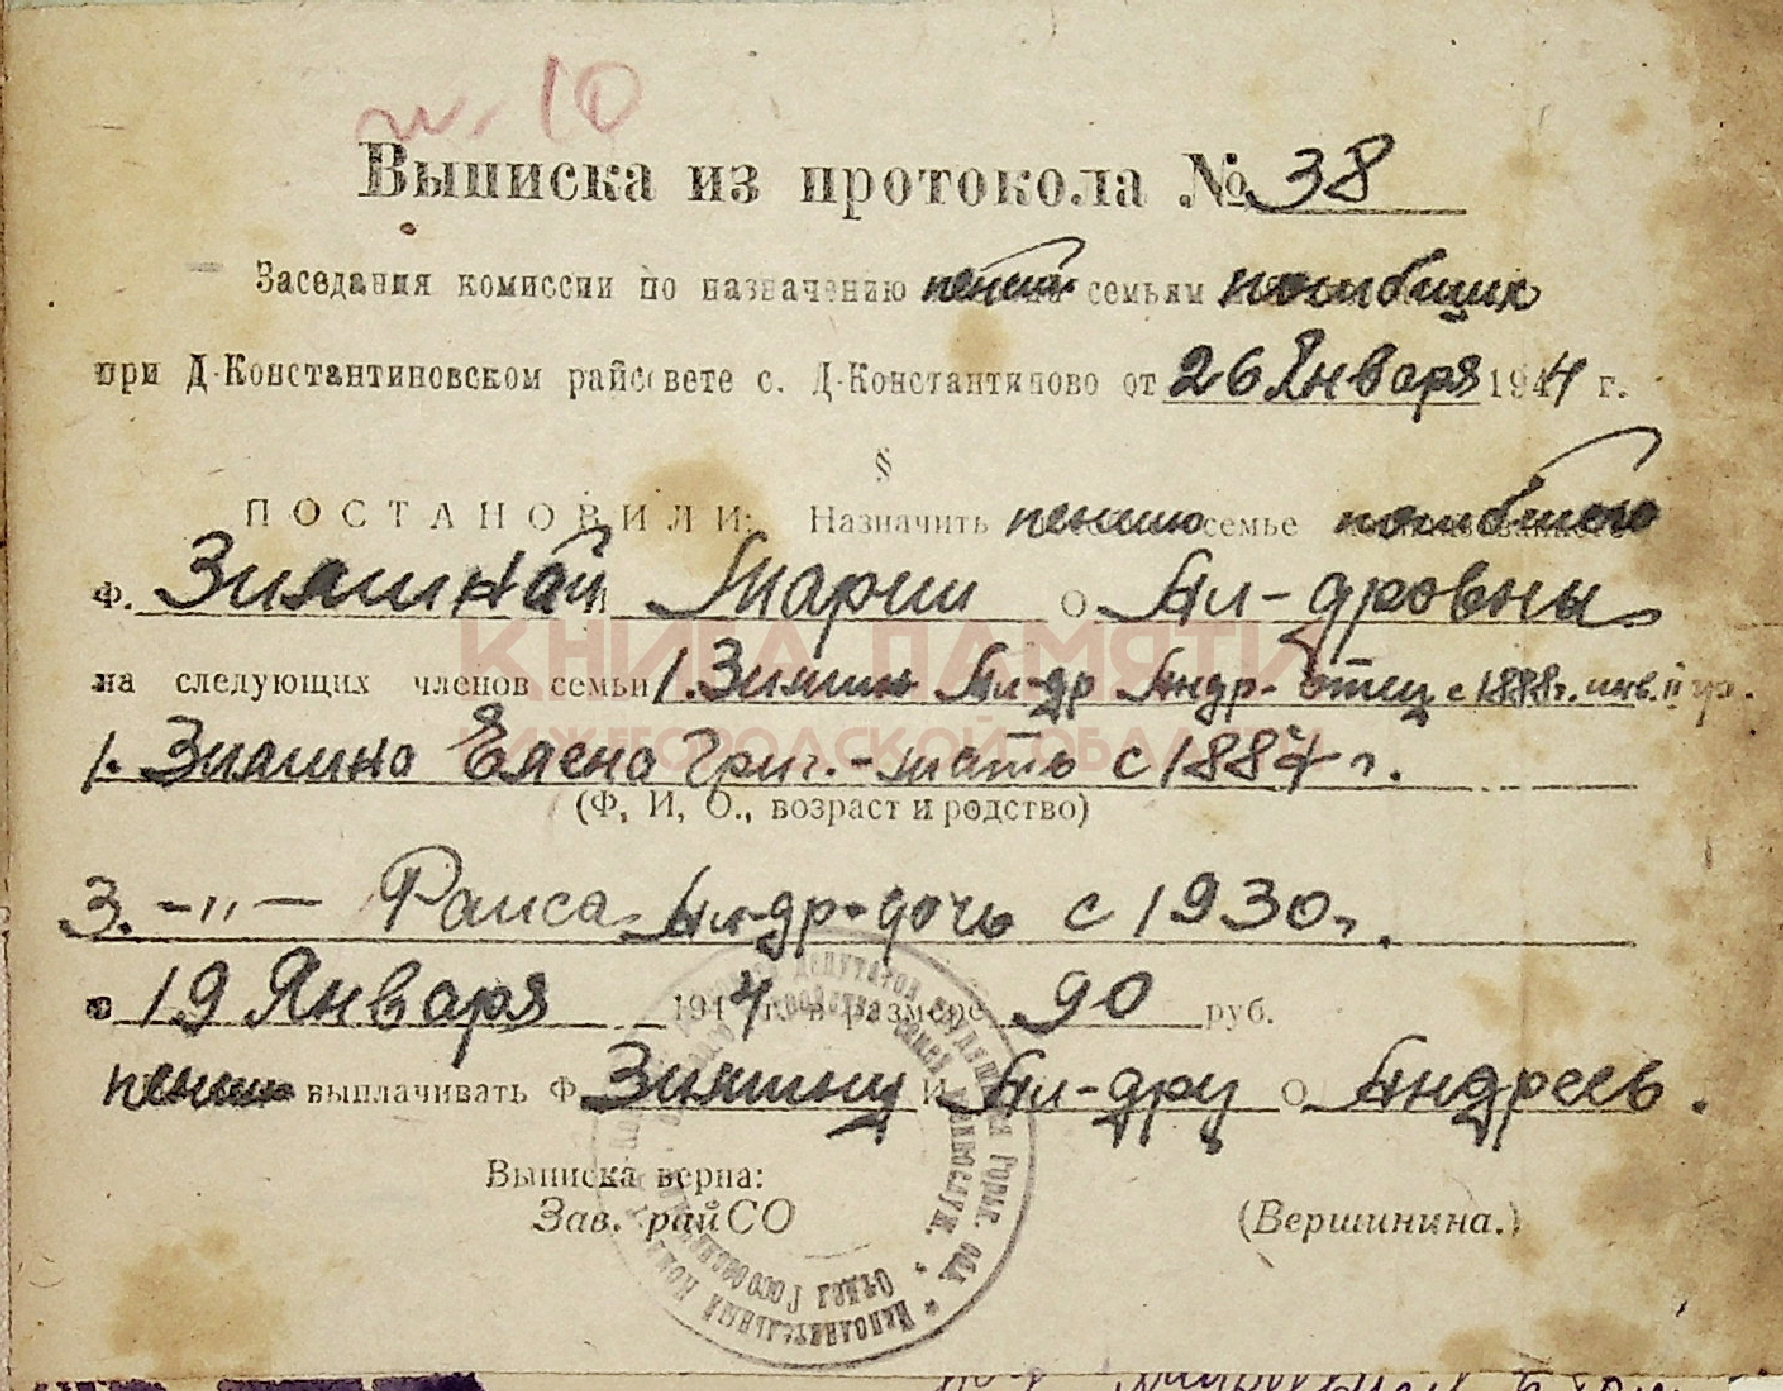 10
Выписка из протокола № 38
Заседания комиссии по назначению пенсии семьям погибших
при Д-Константиновском райсовете с. Д-Константиново от 26 Января 1944 г.
§
ПОСТАНОВИЛИ: Назначить пенсию семье погибшего
Ф. Зиминой Марии О Ал-дровны
на следующих членов семьи 1. Зимин Ал-др Андр- отец с 1888г. инв. II гр.
1. Зимина Елена Григ.- мать с 1887 г.
(Ф, И, О., возраст и родство)
3. -"- Раиса Ал-др- дочь с 1930г.
с 19 Января 1944 г. в размере 90 руб.
пенсию выплачивать Ф Зимину И Ал-дру О Андреев.
Выписка верна:
Зав. райСО (Вершинина.)
КНИГА ПАМЯТИ
НИЖЕГОРОДСКОЙ ОБЛАСТИ